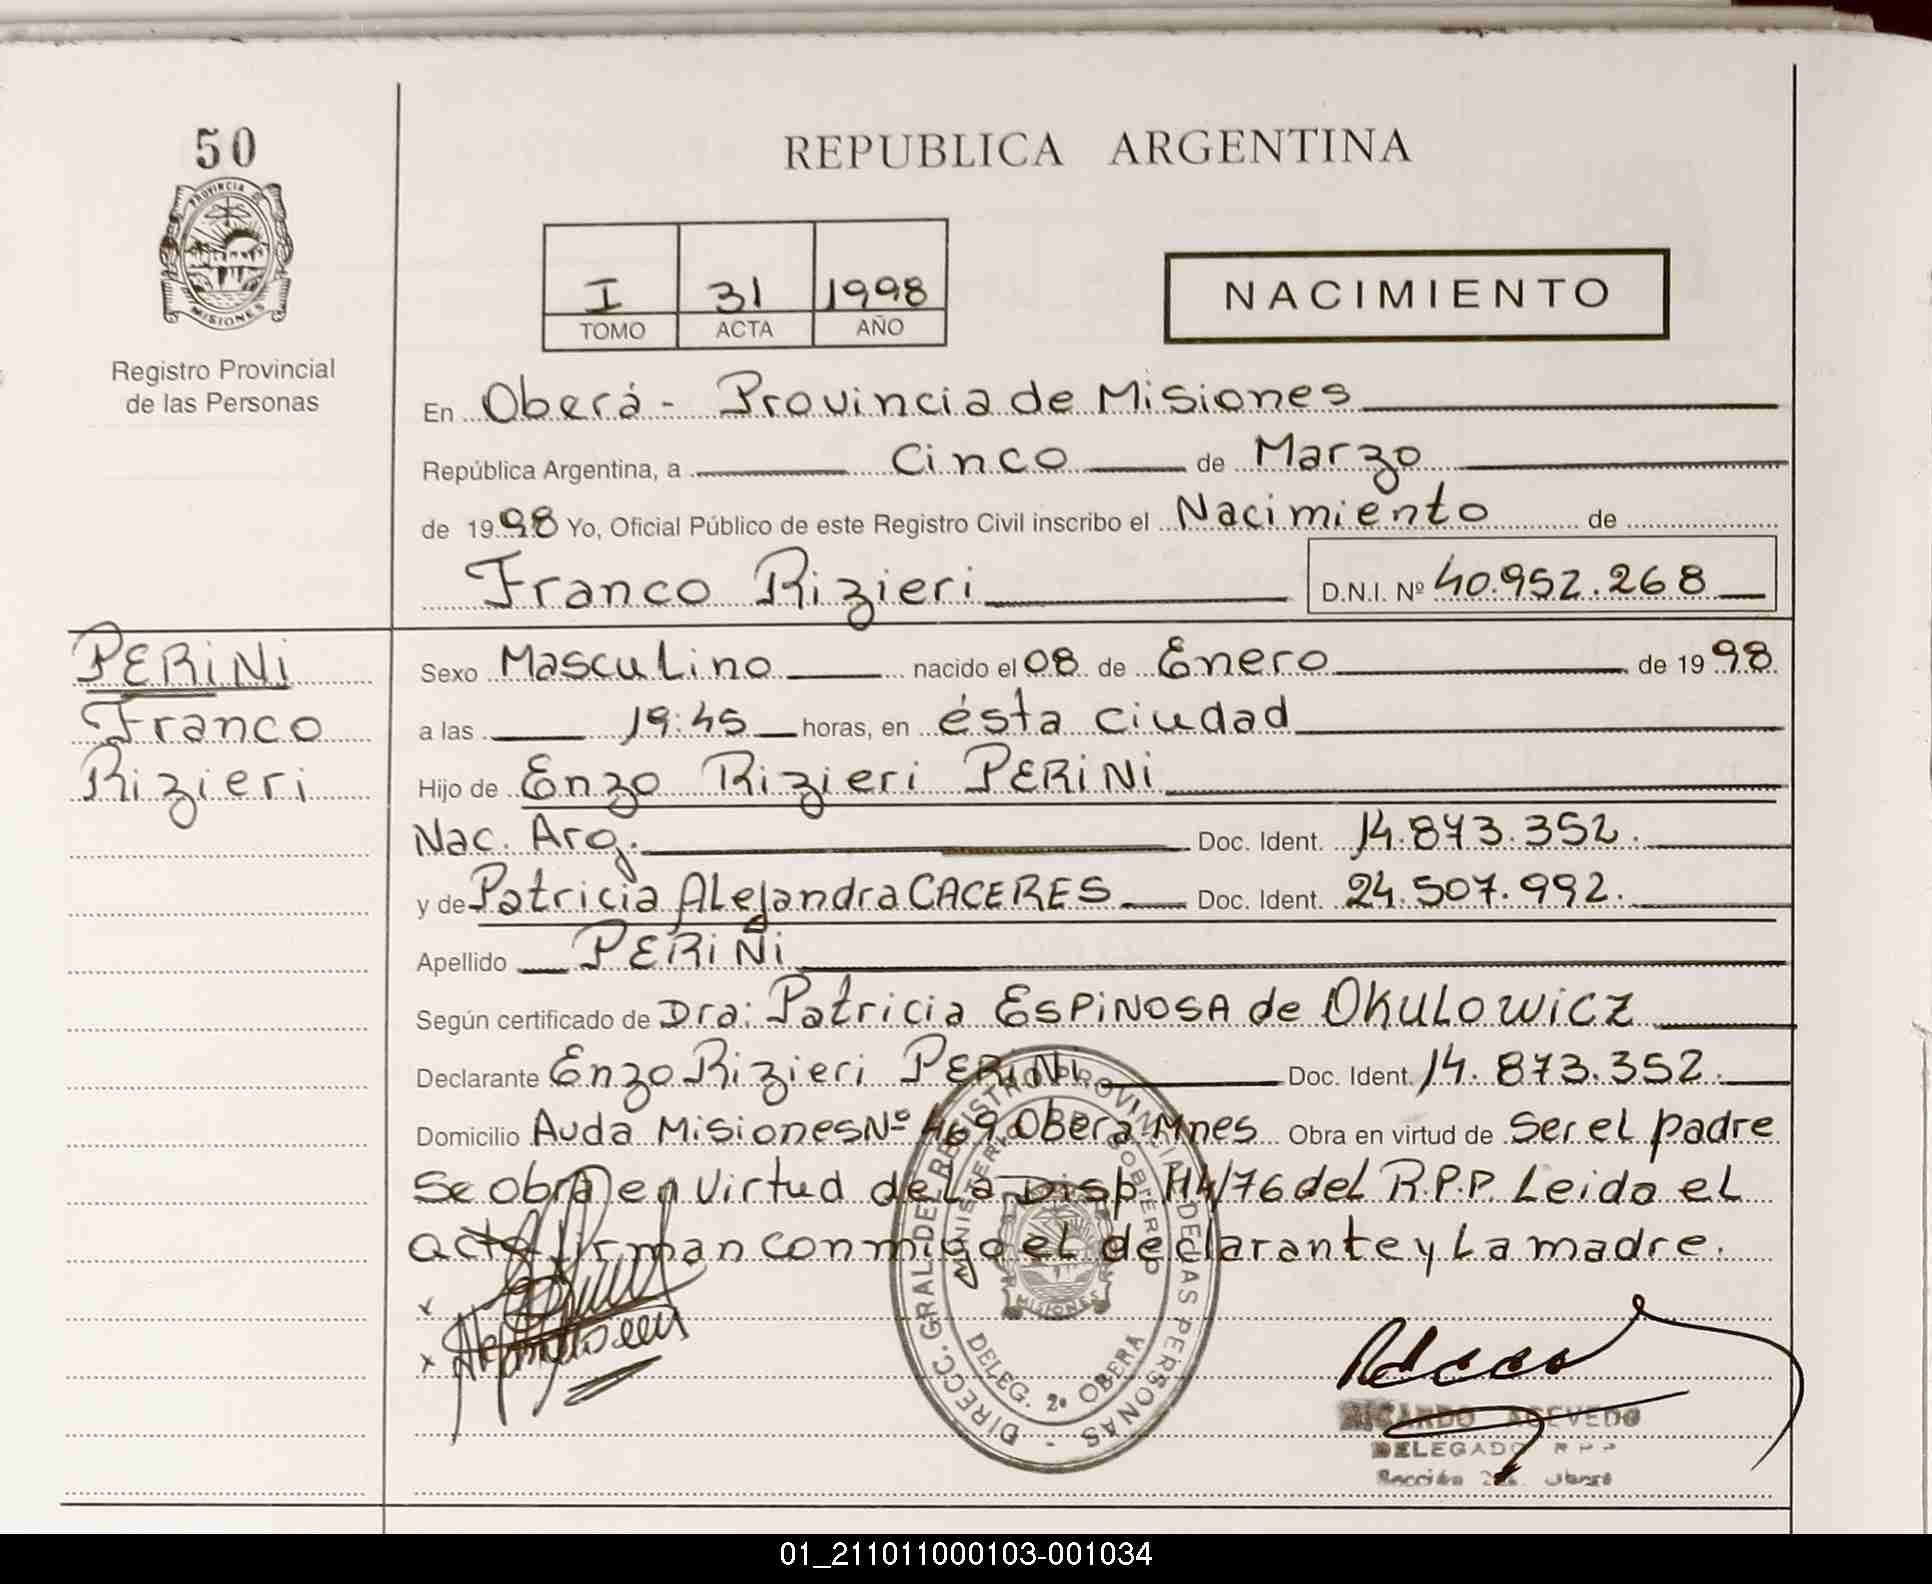 50
PROVINCIA DE
MISIONES
Registro Provincial
de las Personas
REPUBLICA ARGENTINA
I 31 1998
TOMO ACTA AÑO
NACIMIENTO
En Oberá - Provincia de Misiones
República Argentina, a Cinco de Marzo
de 1998 Yo, Oficial Público de este Registro Civil inscribo el Nacimiento de
Franco Rizieri D.N.I. Nº 40.952.268
PERINI
Franco
Rizieri
Sexo Masculino nacido el 08 de Enero de 1998
a las 19:45 horas, en ésta ciudad
Hijo de Enzo Rizieri PERINI
Nac. Arg. Doc. Ident. 14.873.352.
y de Patricia Alejandra CACERES Doc. Ident. 24.507.992.
Apellido PERINI
Según certificado de Dra: Patricia ESPINOSA de OKULOWICZ
Declarante Enzo Rizieri PERINI Doc. Ident. 14.873.352.
Domicilio Avda Misiones Nº 469 Obera Mnes Obra en virtud de Ser el padre
Se obra en virtud de la Disp 114/76 del R.P.P. Leida el
acta firman conmigo el declarante y La madre.
DIRECC. GRAL. DE REGISTRO PROVINCIAL DE LAS PERSONAS -
MISIONES
DELEG. 2ª OBERA
RICARDO ACEVEDO
DELEGADO R P P
Sección
01_211011000103-001034